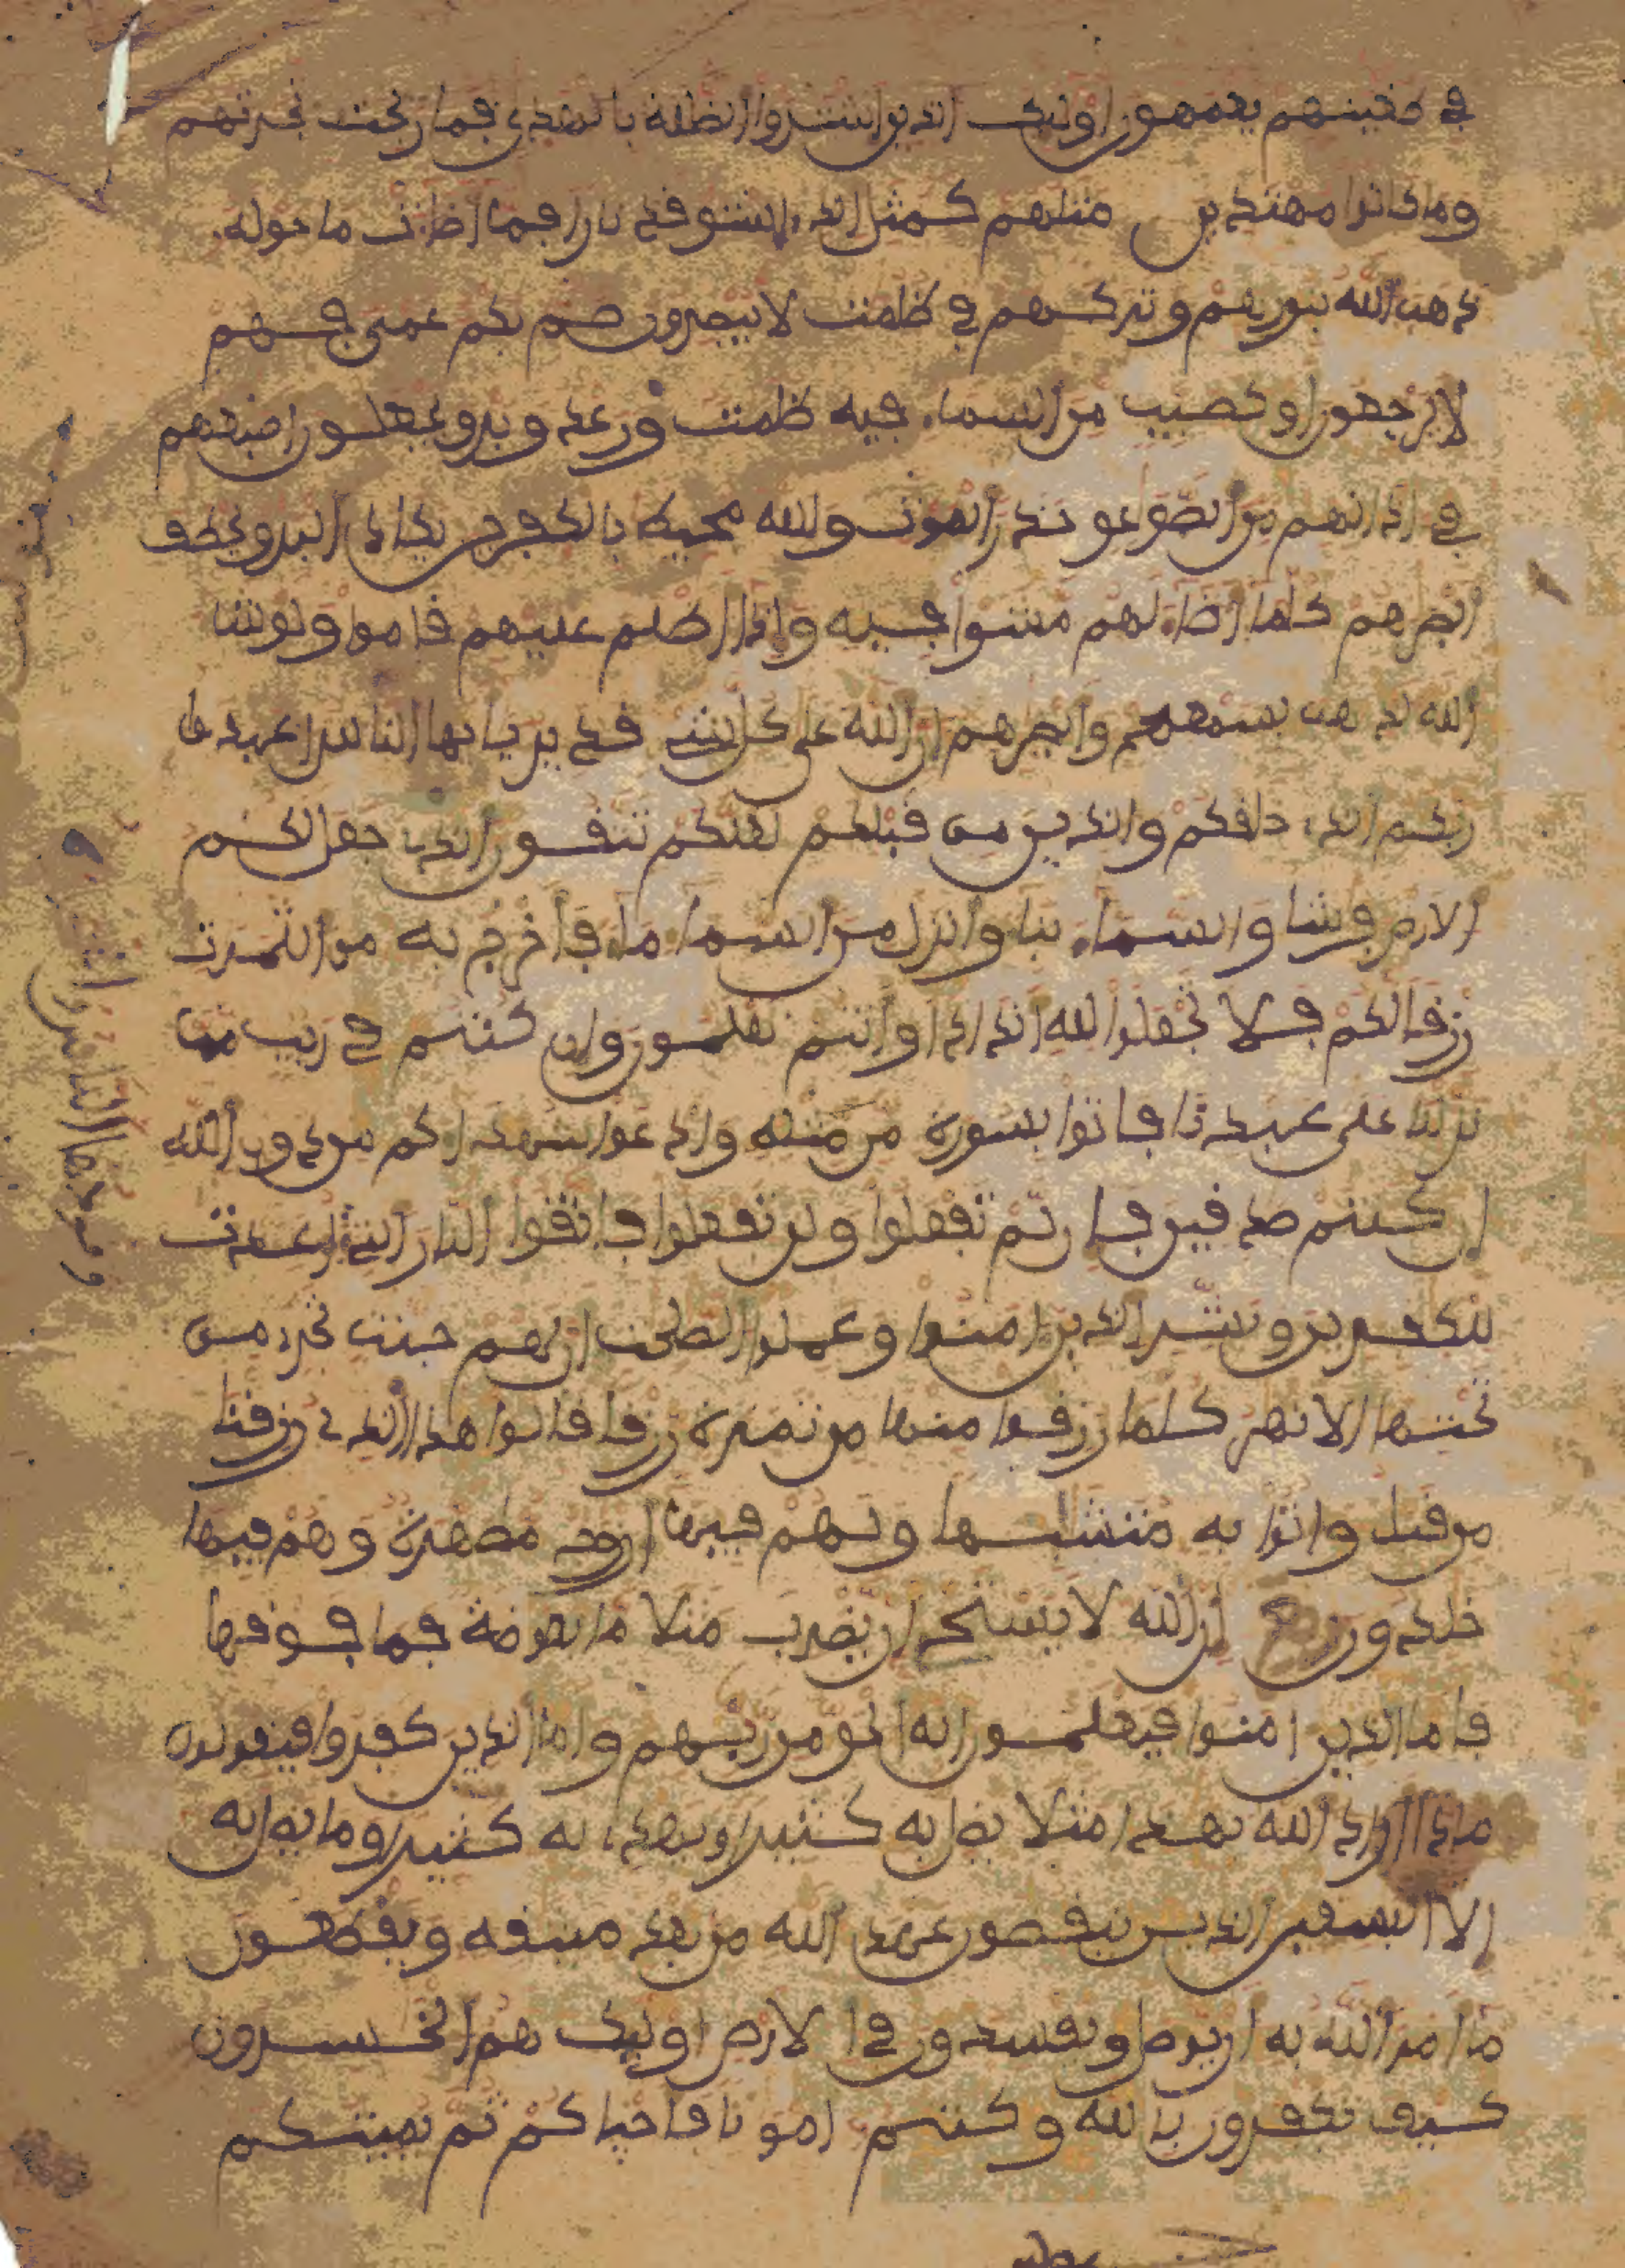 في طغينهم يعمهون اوليك الذين اشتروا الضللة بالهدى فما ربحت تجرتهم
وما كانوا مهتدين مثلهم كمثل الذي استوقد نارا فلما اضات ما حوله
ذهب الله بنورهم وتركهم في ظلمت لا يبصرون صم بكم عمى فهم
لا يرجعون او كصيب من السماء فيه ظلمت ورعد وبرق يجعلون اصبعهم
في اذانهم من الصوعق حذر الموت والله محيط بالكفرين يكاد البرق يخطف
ابصرهم كلما اضاء لهم مشوا فيه واذا اظلم عليهم قاموا ولو شا
الله لذهب بسمعهم وابصرهم ان الله على كل شيء قدير يايها الناس اعبدوا
ربكم الذي خلقكم والذين من قبلكم لعلكم تتقون الذي جعل لكم
الارض فرشا والسماء بناء وانزل من السماء ماء فاخرج به من الثمرت
رزقا لكم فلا تجعلوا لله اندادا وانتم تعلمون وان كنتم في ريب مما
نزلنا على عبدنا فاتوا بسورة من مثله وادعوا شهداكم من دون الله
ان كنتم صدقين فان لم تفعلوا ولن تفعلوا فاتقوا النار التي اعدت
للكفرين وبشر الذين امنوا وعملوا الصلحت ان لهم جنت تجري من
تحتها الانهر كلما رزقوا منها من ثمرة رزقا قالوا هذا الذي رزقنا
من قبل واتوا به متشبها ولهم فيها ازوج مطهرة وهم فيها
خلدون ان الله لا يستحي ان يضرب مثلا ما بعوضة فما فوقها
فاما الذين امنوا فيعلمون انه الحق من ربهم واما الذين كفروا فيقولون
ماذا اراد الله بهذا مثلا يضل به كثيرا ويهدي به كثيرا وما يضل به
الا الفسقين الذين ينقضون عهد الله من بعد ميثقه ويقطعون
ما امر الله به ان يوصل ويفسدون في الارض اوليك هم الخسرون
كيف تكفرون بالله وكنتم امواتا فاحياكم ثم يميتكم
وقودها الناس